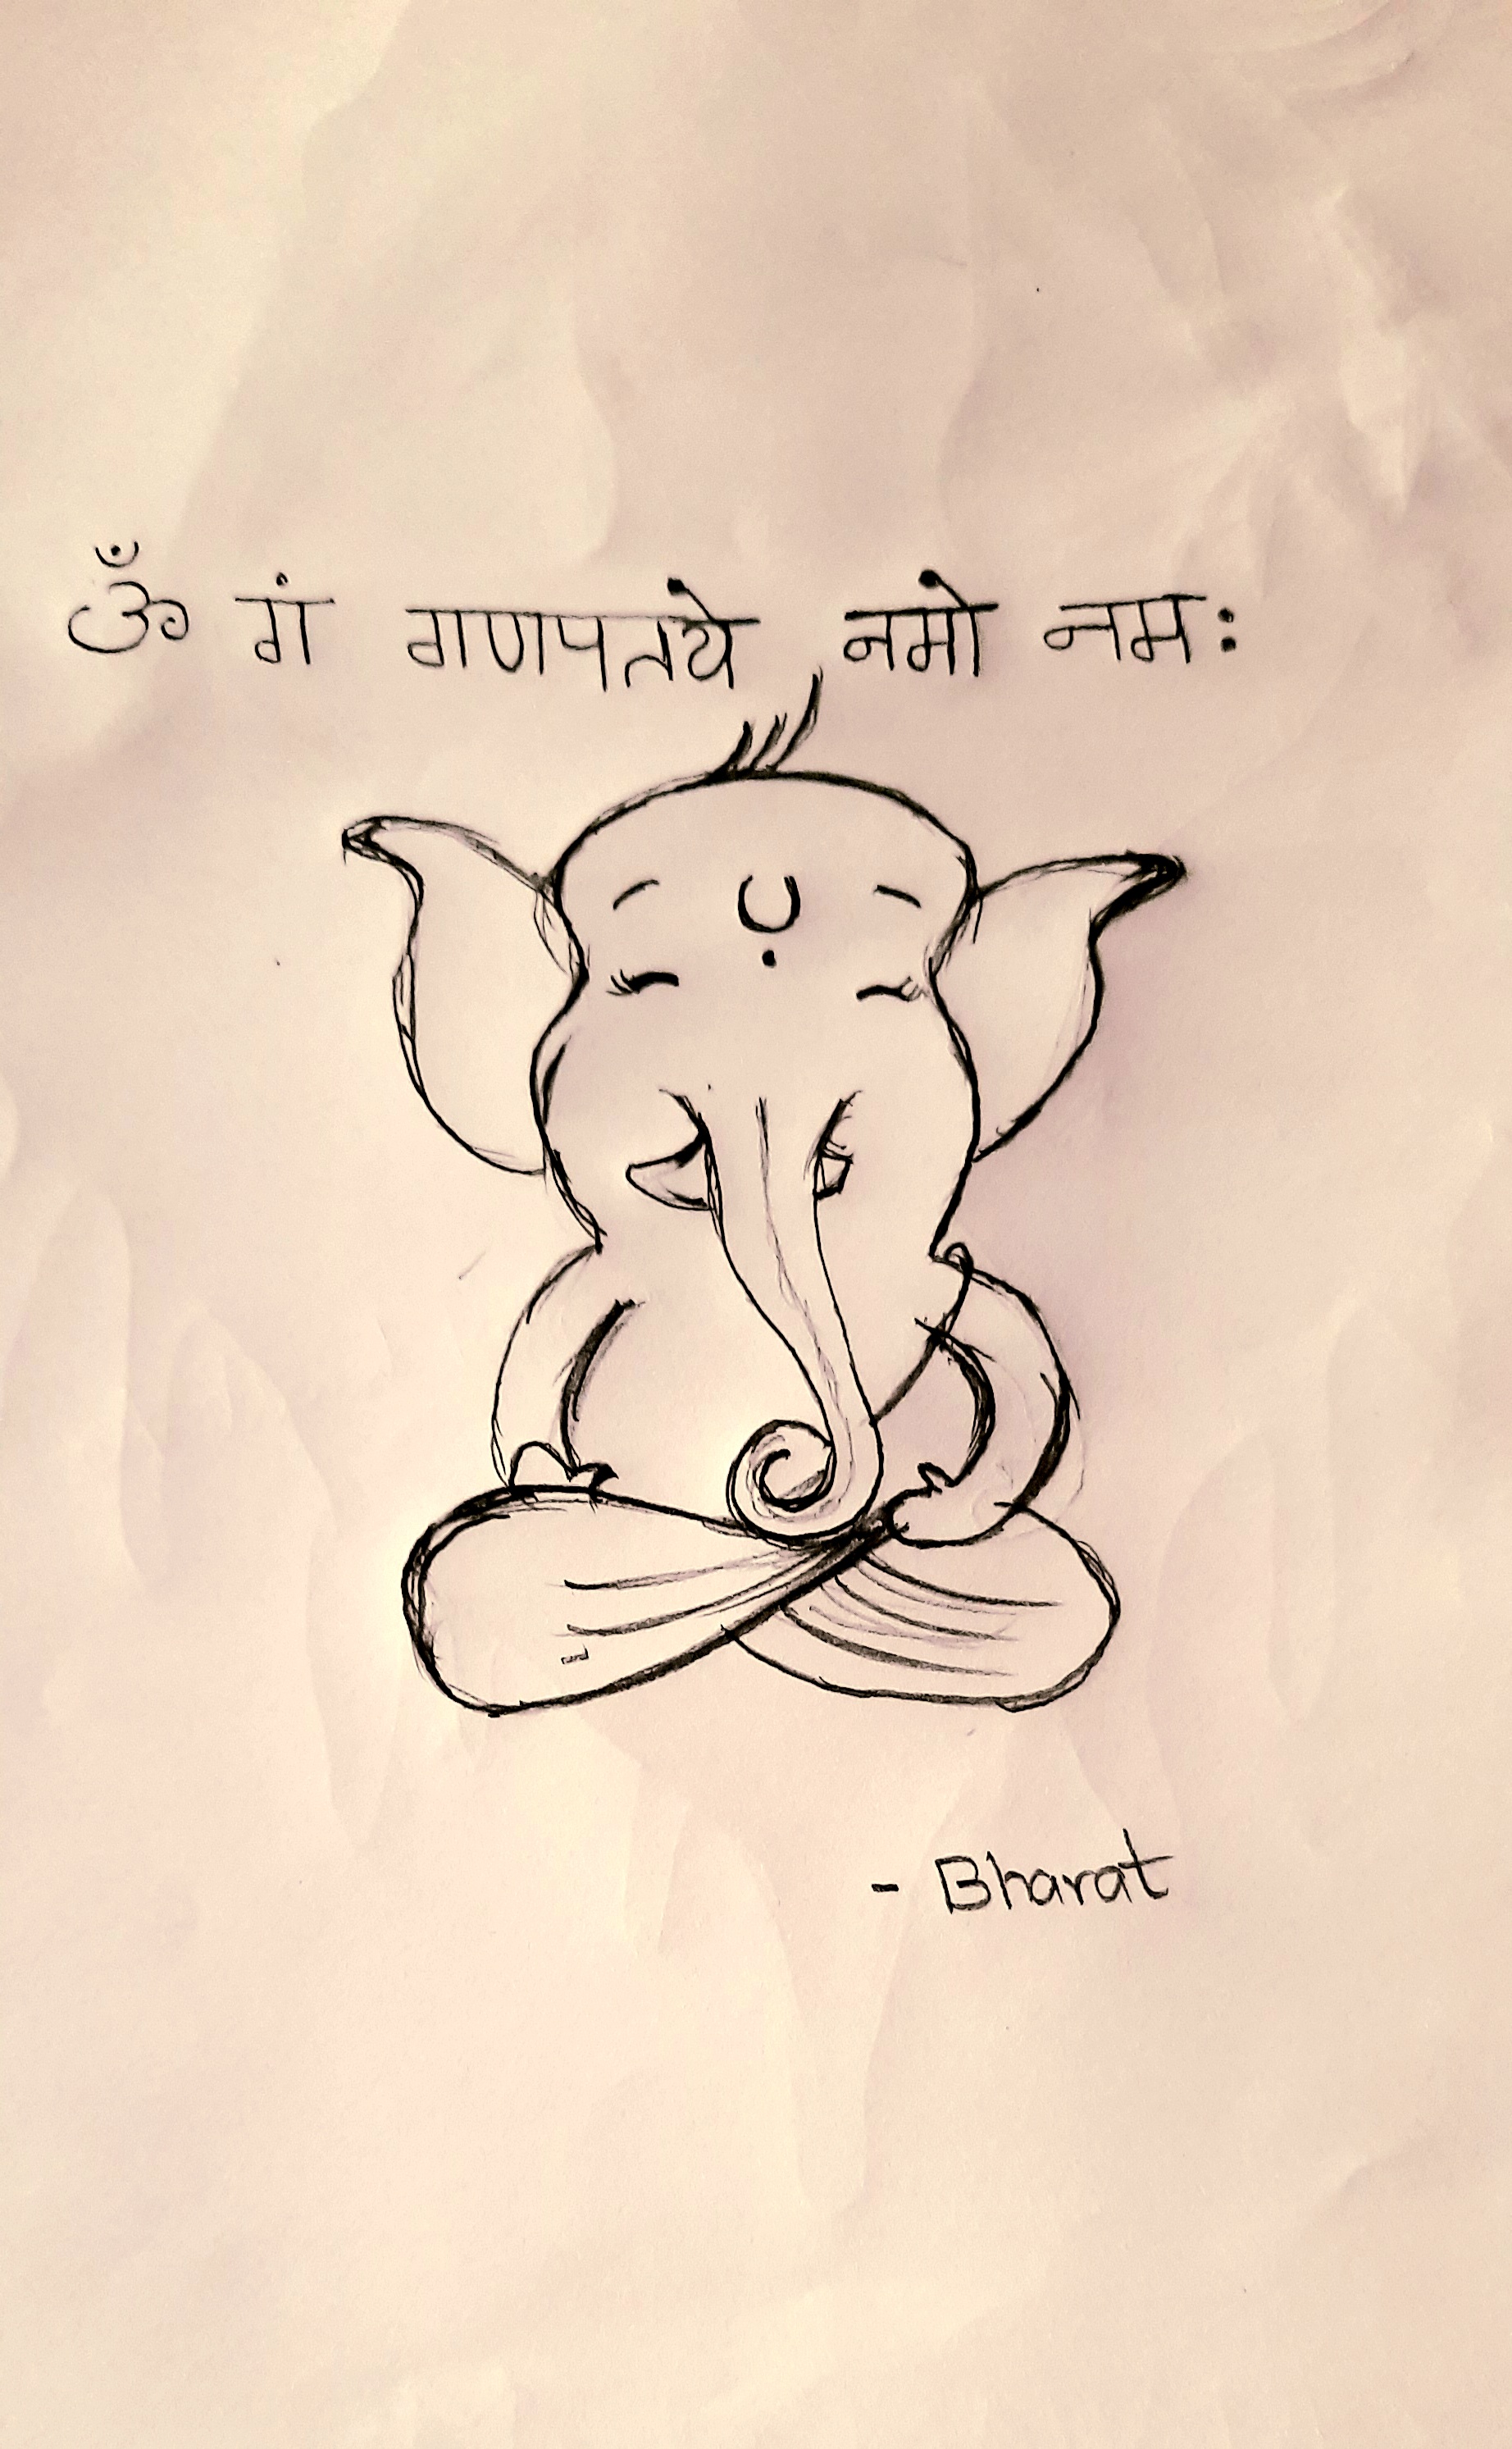 ॐ गं गणपतये नमो नमः
- Bharat